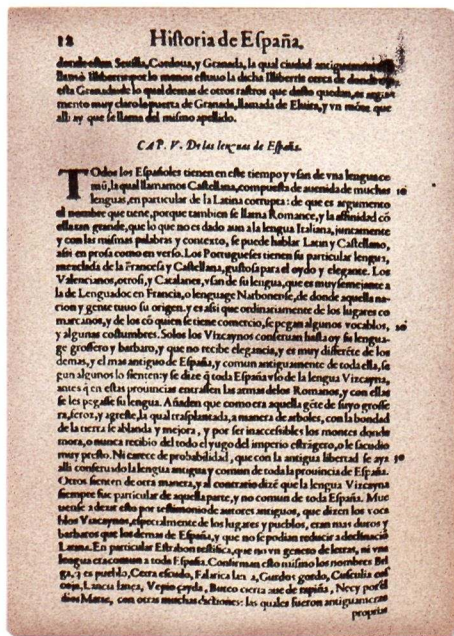 12 Historia de España.
donde estan Seuilla, Cordoua, y Granada, la qual ciudad antiguamente se
llamò Illiberris: por lo menos estuuo la dicha Illiberris cerca de donde
esta Granada: de lo qual demas de otros rastros que desto quedan, es argu-
mento muy claro la puerta de Granada, llamada de Eluira, y vn mõte que
alli ay que se llama del mismo apellido.
CAP. V. De las lenguas de España.
TOdos los Españoles tienen en este tiempo y vsan de vna lengua co-
mũ, la qual llamamos Castellana, compuesta de auenida de muchas 10
lenguas, en particular de la Latina corrupta: de que es argumento
el nombre que tiene, porque tambien se llama Romance, y la affinidad cõ
ella tan grande, que lo que no es dado aun a la lengua Italiana, juntamente
y con las mismas palabras y contexto, se puede hablar Latin y Castellano,
assi en prosa como en verso. Los Portugueses tienen su particular lengua,
mezclada de la Francesa y Castellana, gustosa para el oydo y elegante. Los
Valencianos, otrosi, y Catalanes, vsan de su lengua, que es muy semejante a
la de Lenguadoc en Francia, o lenguage Narbonense, de donde aquella na-
cion y gente tuuo su origen, y es assi que ordinariamente de los lugares co
marcanos, y de los cõ quien se tiene comercio, se pegan algunos vocablos, 20
y algunas costumbres. Solos los Vizcaynos conseruan hasta oy su lengua-
ge grossero y barbaro, y que no recibe elegancia, y es muy diferẽte de los
demas, y el mas antiguo de España, y comun antiguamente de toda ella, se
gun algunos lo sienten: y se dize q̃ toda España vso de la lengua Vizcayna,
antes q̃ en estas prouincias entrassen las armas delos Romanos, y con ellas
se les pegasse su lengua. Añaden que como era aquella gẽte de suyo grosse
ra, feroz, y agreste, la qual trasplantada, a manera de arboles, con la bondad
de la tierra se ablanda y mejora, y por ser inaccessibles los montes donde
mora, o nunca recibio del todo el yugo del imperio estrãgero, o le sacudio
muy presto. Ni carece de probabilidad, que con la antigua libertad se aya 30
alli conseruado la lengua antigua y comun de toda la prouincia de España.
Otros sienten de otra manera, y al contrario dizẽ que la lengua Vizcayna
siempre fue particular de aquella parte, y no comun de toda España. Mue
uense a dezir esto por testimonio de autores antiguos, que dizen los voca
blos Vizcaynos, especialmente de los lugares y pueblos, eran mas duros y
barbaros que los demas de España, y que no se podian reducir a declinaciõ
Latina. En particular Estrabon testifica, que no vn genero de letras, ni vna
lengua era comun a toda España. Confirman esto mismo los nombres Bri
ga, q̃ es pueblo, Cetra escudo, Falarica lança, Gurdus gordo, Cusculia cos
coja, Lancia lança, Vepio çayda, Buteo cierta aue de rapiña, Necy por el
dios Marte, con otras muchas dictiones: las quales fueron antiguamente
proprias